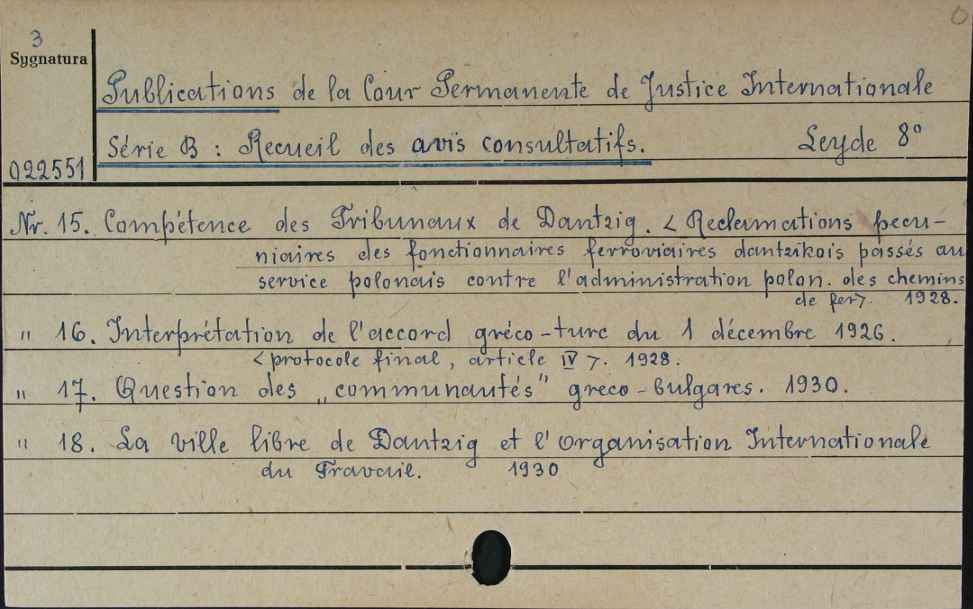 3
Sygnatura
Publications de la Cour Permanente de Justice Internationale
Série B : Recueil des avis consultatifs. Leyde 8°
022551
Nr. 15. Compétence des Tribunaux de Dantzig. < Reclamations pecu-
niaires des fonctionnaires ferroviaires dantzikois passés au
service polonais contre l'administration polon. des chemins
de fer>. 1928.
" 16. Interprétation de l'accord gréco-turc du 1 décembre 1926.
<protocole final, article IV>. 1928.
" 17. Question des „communautés" greco-bulgares. 1930.
" 18. La ville libre de Dantzig et l'organisation Internationale
du Travail. 1930